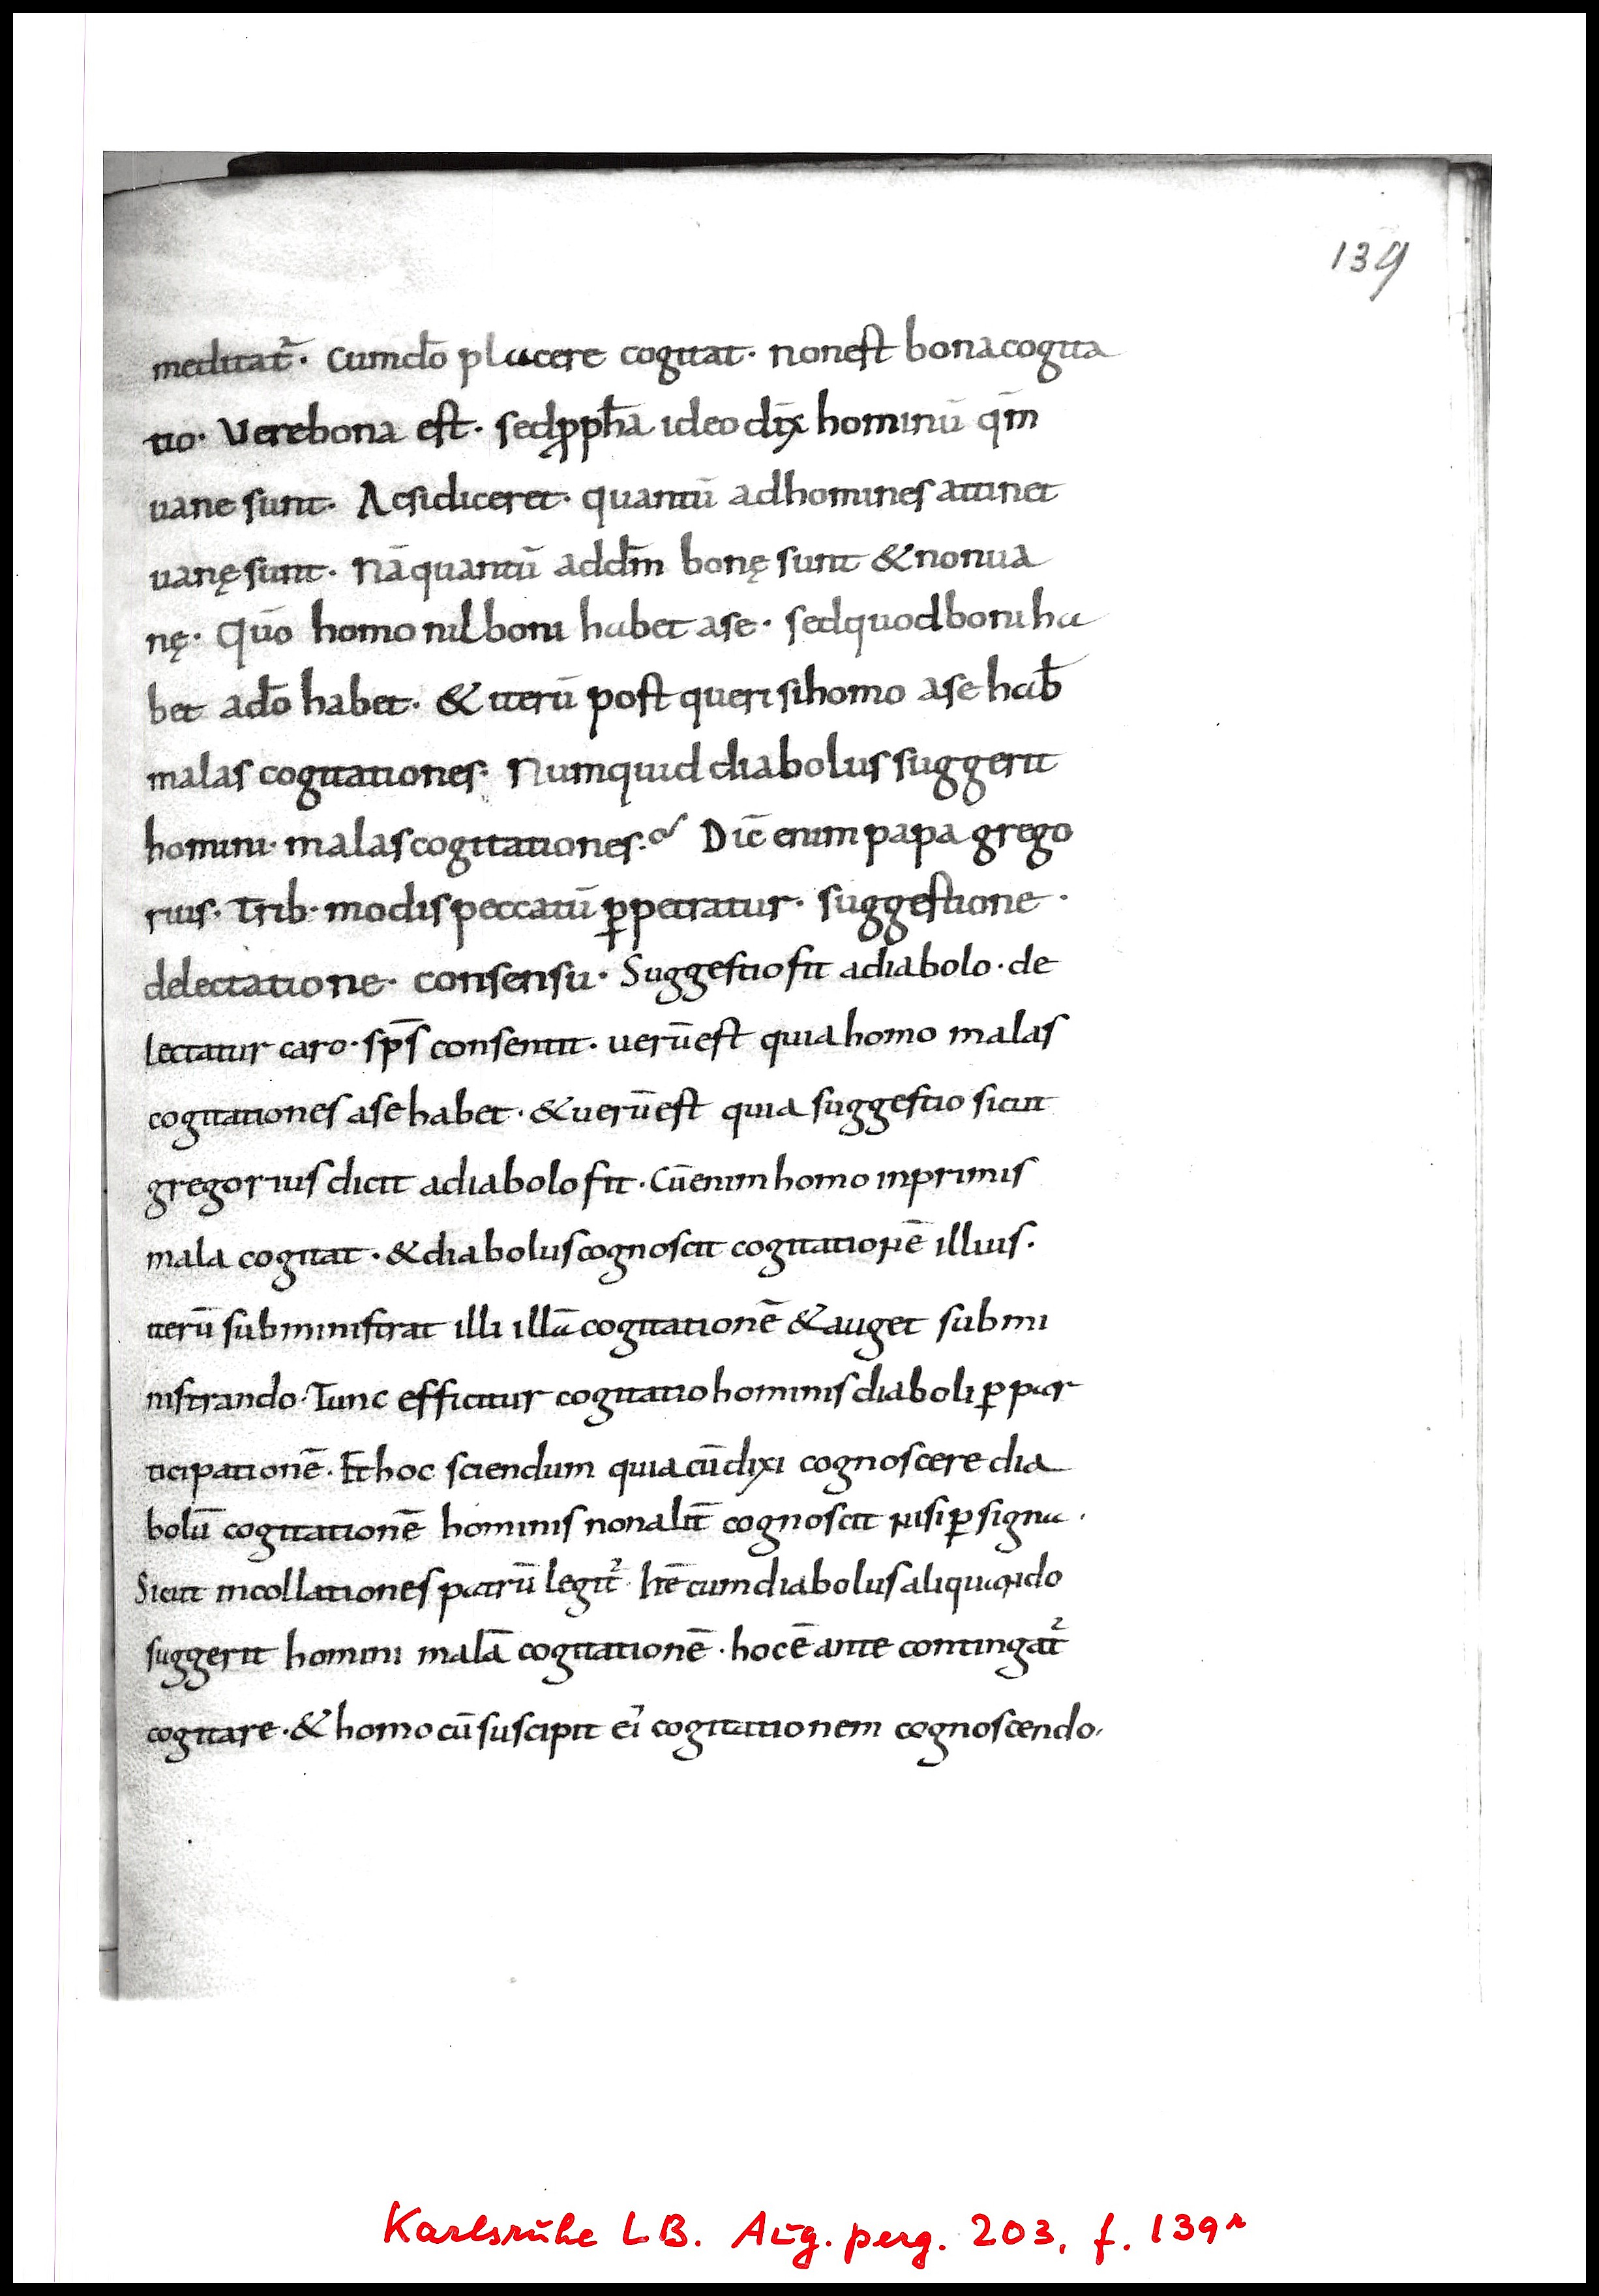 139
meditat᷑· Cum dō placere cogitat· non est bona cogita
tio· Vere bona est· sed ꝓpħa ideo dix̄ hominū qm̄
uane sunt· Ac si diceret· quantū ad homines attinet
uanę sunt· Nā quantū ad dm̄ bonę sunt & non ua
nę· Quō homo nil boni habet a se· sed quod boni ha
bet a dō habet· & iterū post queri si homo a se hab̄
malas cogitationes· Numquid diabolus suggerit
homini· malas cogitationes· Dic̄ enim papa grego
rius· Trib· modis peccatū ꝑpetratur· suggestione·
delectatione· consensu· Suggestio fit a diabolo· de
lectatur caro· sps̄ consentit· uerū est quia homo malas
cogitationes a se habet· & uerū est quia suggestio sicut
gregorius dicit a diabolo fit· Cū enim homo inprimis
mala cogitat· & diabolus cognoscit cogitationē illius·
iterū subministrat illi illā cogitationē & auget submi
nistrando· Tunc efficitur cogitatio hominis diaboli ꝑ par
ticipationē· Et hoc sciendum quia cū dixi cognoscere dia
bolū cogitationē hominis non alit̄ cognoscit nisi ꝑ signa·
Sicut in collationes patrū legit᷑· Itē cum diabolus aliquando
suggerit homini malā cogitationē· hoc ē ante contingat᷑
cogitare· & homo cū suscipit ei᷒ cogitationem cognoscendo·
Karlsruhe LB. Aug. perg. 203, f. 139r